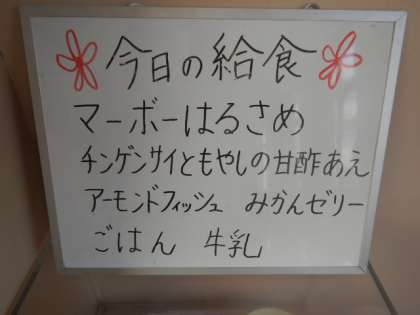 今日の給食
マーボーはるさめ
チンゲンサイともやしの甘酢あえ
アーモンドフィッシュ みかんゼリー
ごはん 牛乳